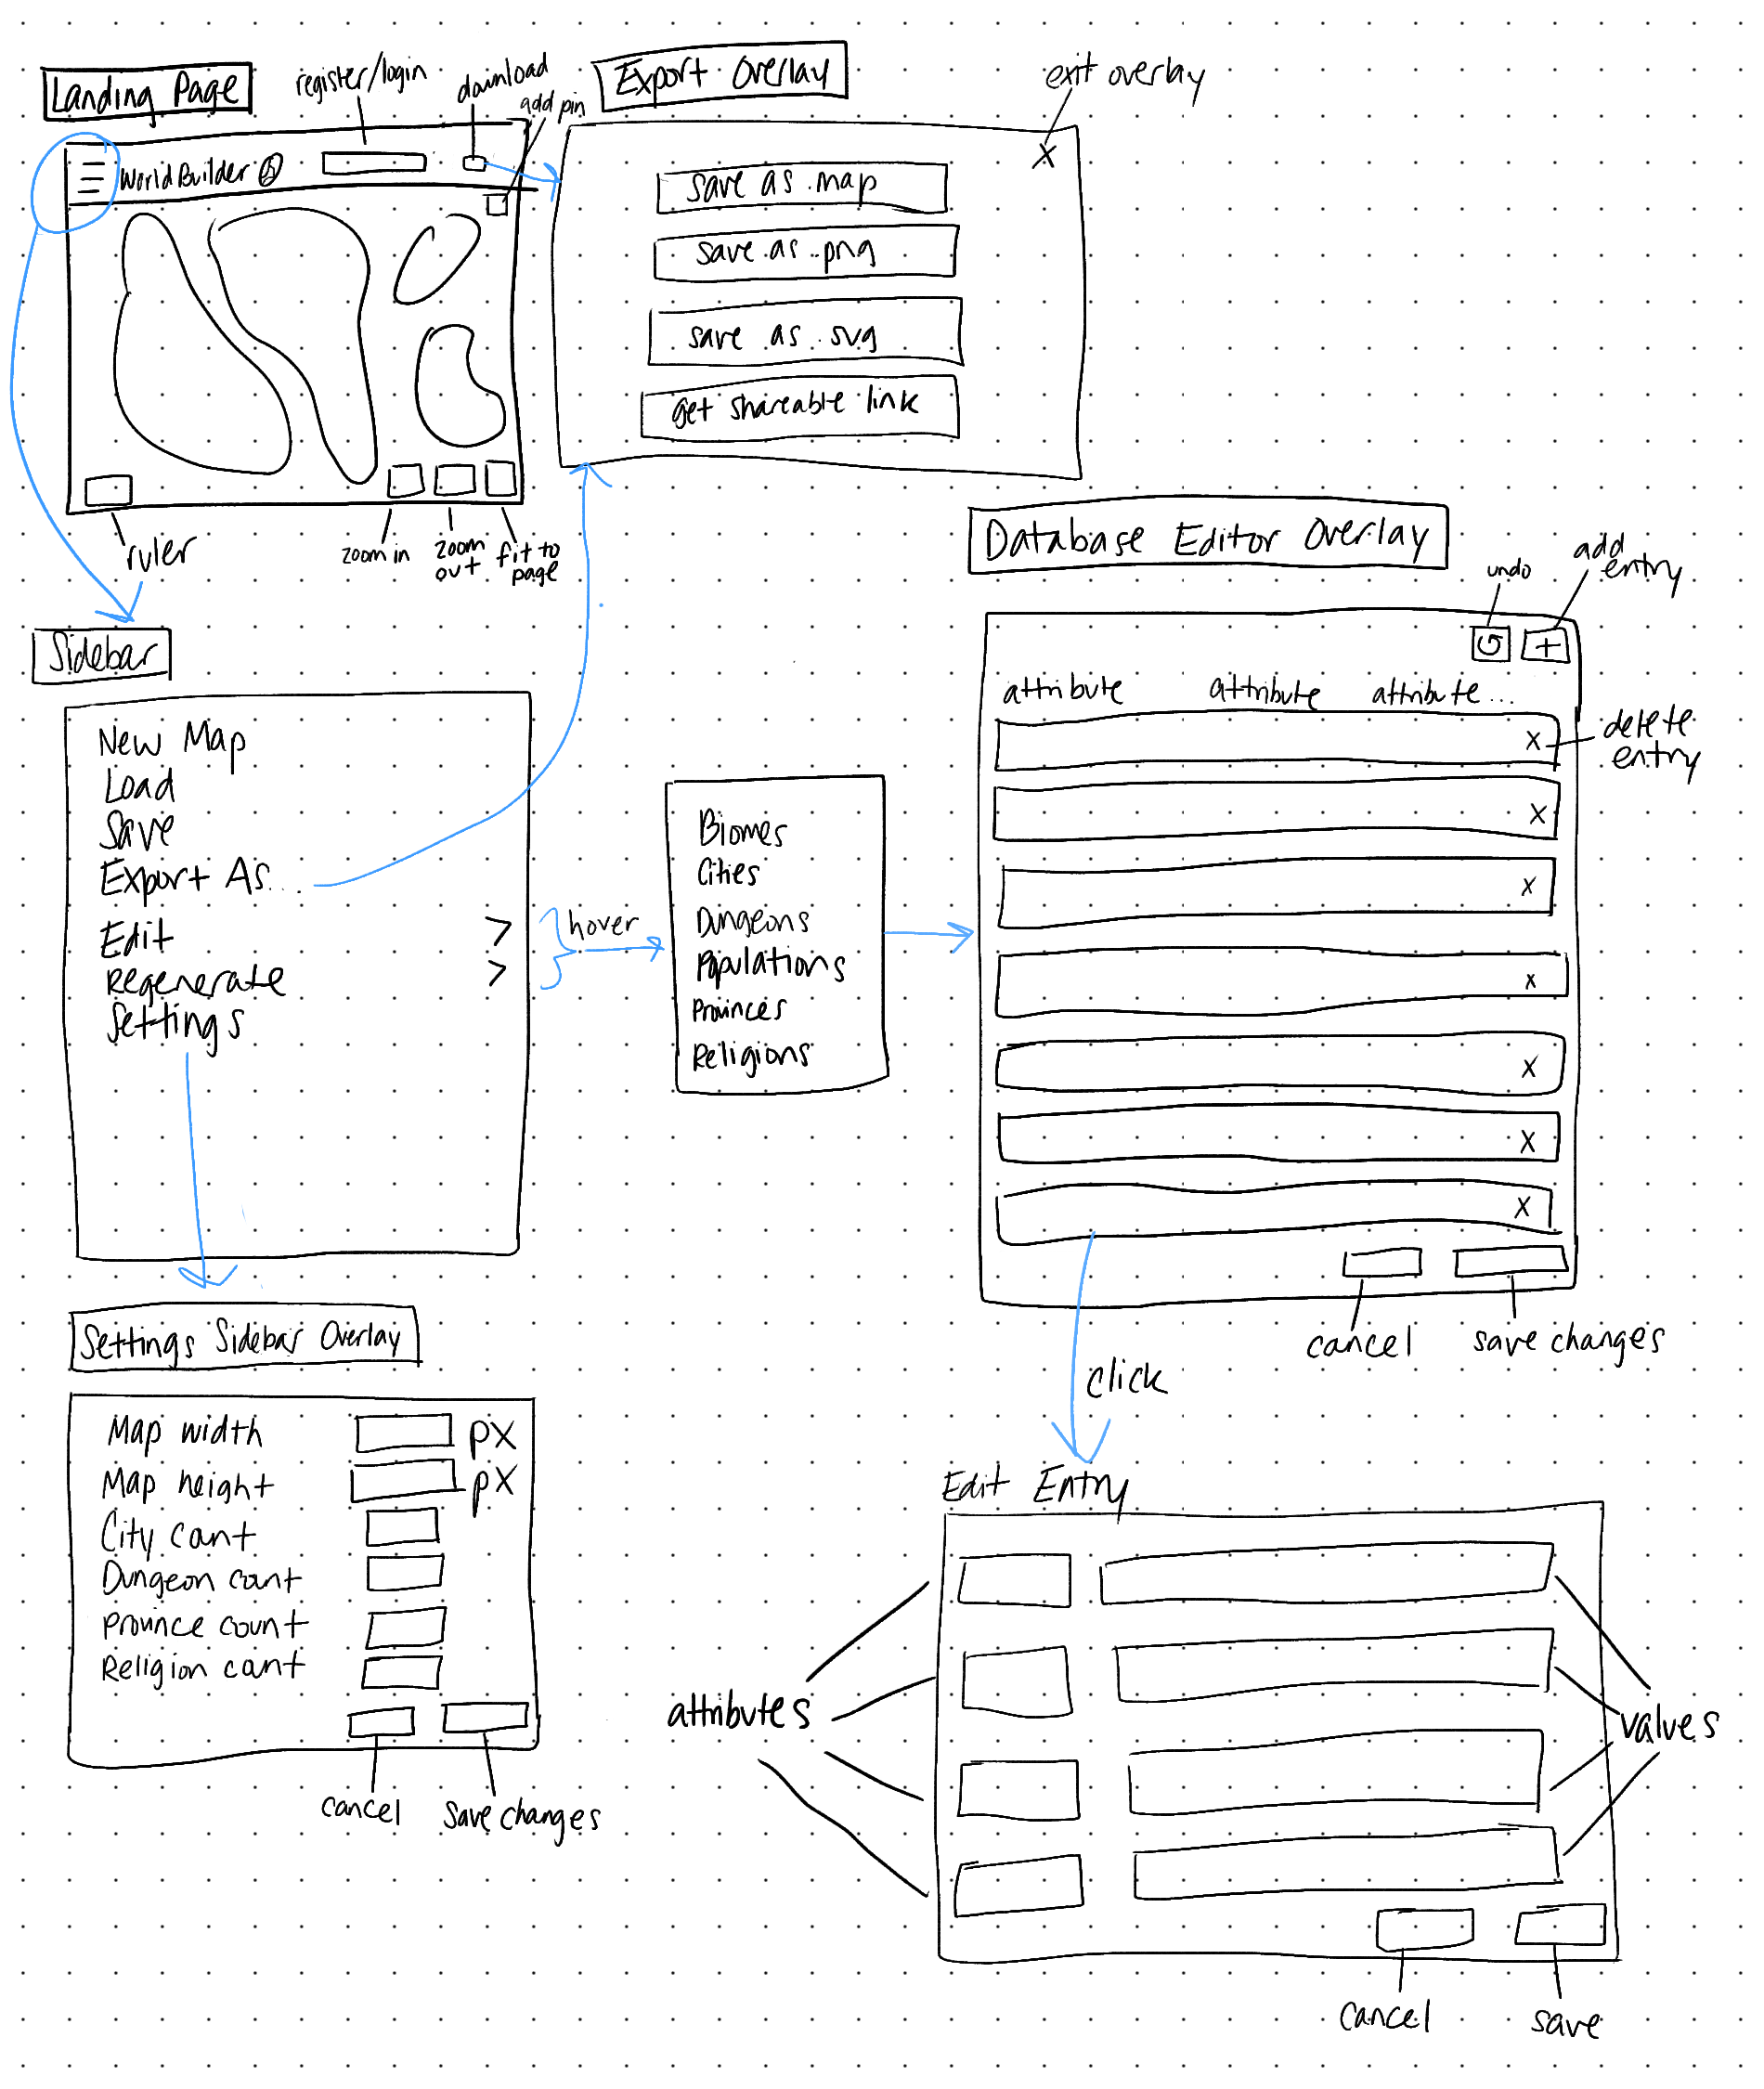 Landing Page
register/login
download
add pin
World Builder
ruler
zoom in
zoom
out
fit to
page
Export Overlay
exit overlay
X
save as .map
save as .png
save as .svg
get shareable link
Sidebar
New Map
Load
Save
Export As...
Edit >
Regenerate >
Settings
hover
Biomes
Cities
Dungeons
Populations
Provinces
Religions
Database Editor Overlay
undo
add
entry
+
attribute attribute attribute...
X
delete
entry
X
X
X
X
X
X
cancel
save changes
click
Settings Sidebar Overlay
Map width px
Map height px
City count
Dungeon count
Province count
Religion count
cancel
save changes
Edit Entry
attributes
values
cancel
save